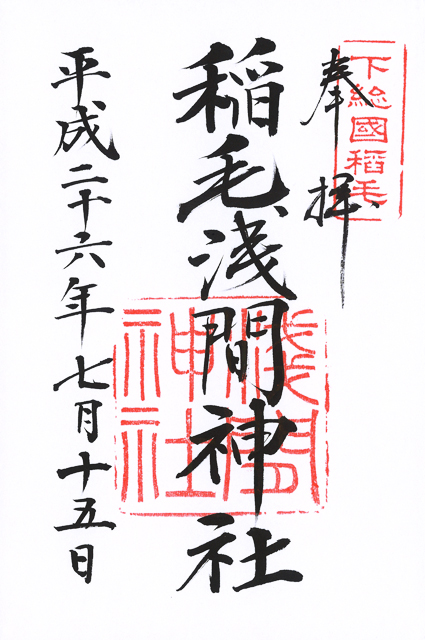 奉拝
下総國稻毛
稲毛浅間神社
浅間神社
平成二十六年七月十五日